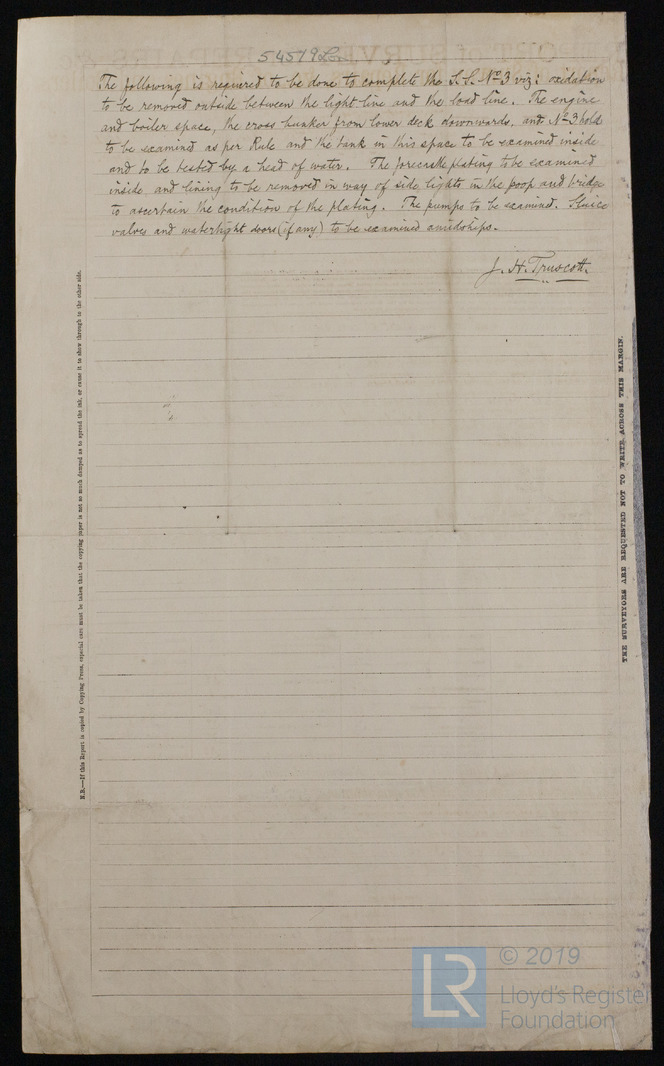 54519 Lon
The following is required to be done to complete the S.S. No 3 viz: oxidation
to be removed outside between the light line and the load line. The engine
and boiler space, the cross bunker from lower deck downwards, and No 3 hold
to be examined as per Rule and the tank in this space to be examined inside
and to be tested by a head of water. The forecastle plating to be examined
inside and lining to be removed in way of side lights in the poop and bridge
to ascertain the condition of the plating. The pumps to be examined. Sluice
valves and watertight doors (if any) to be examined amidships.
J. H. Truscott.
N.B.—If this Report is copied by Copying Press, especial care must be taken that the copying paper is not so much damped as to spread the ink, or cause it to show through to the other side.
THE SURVEYORS ARE REQUESTED NOT TO WRITE ACROSS THIS MARGIN.
LR
© 2019
Lloyd's Register
Foundation